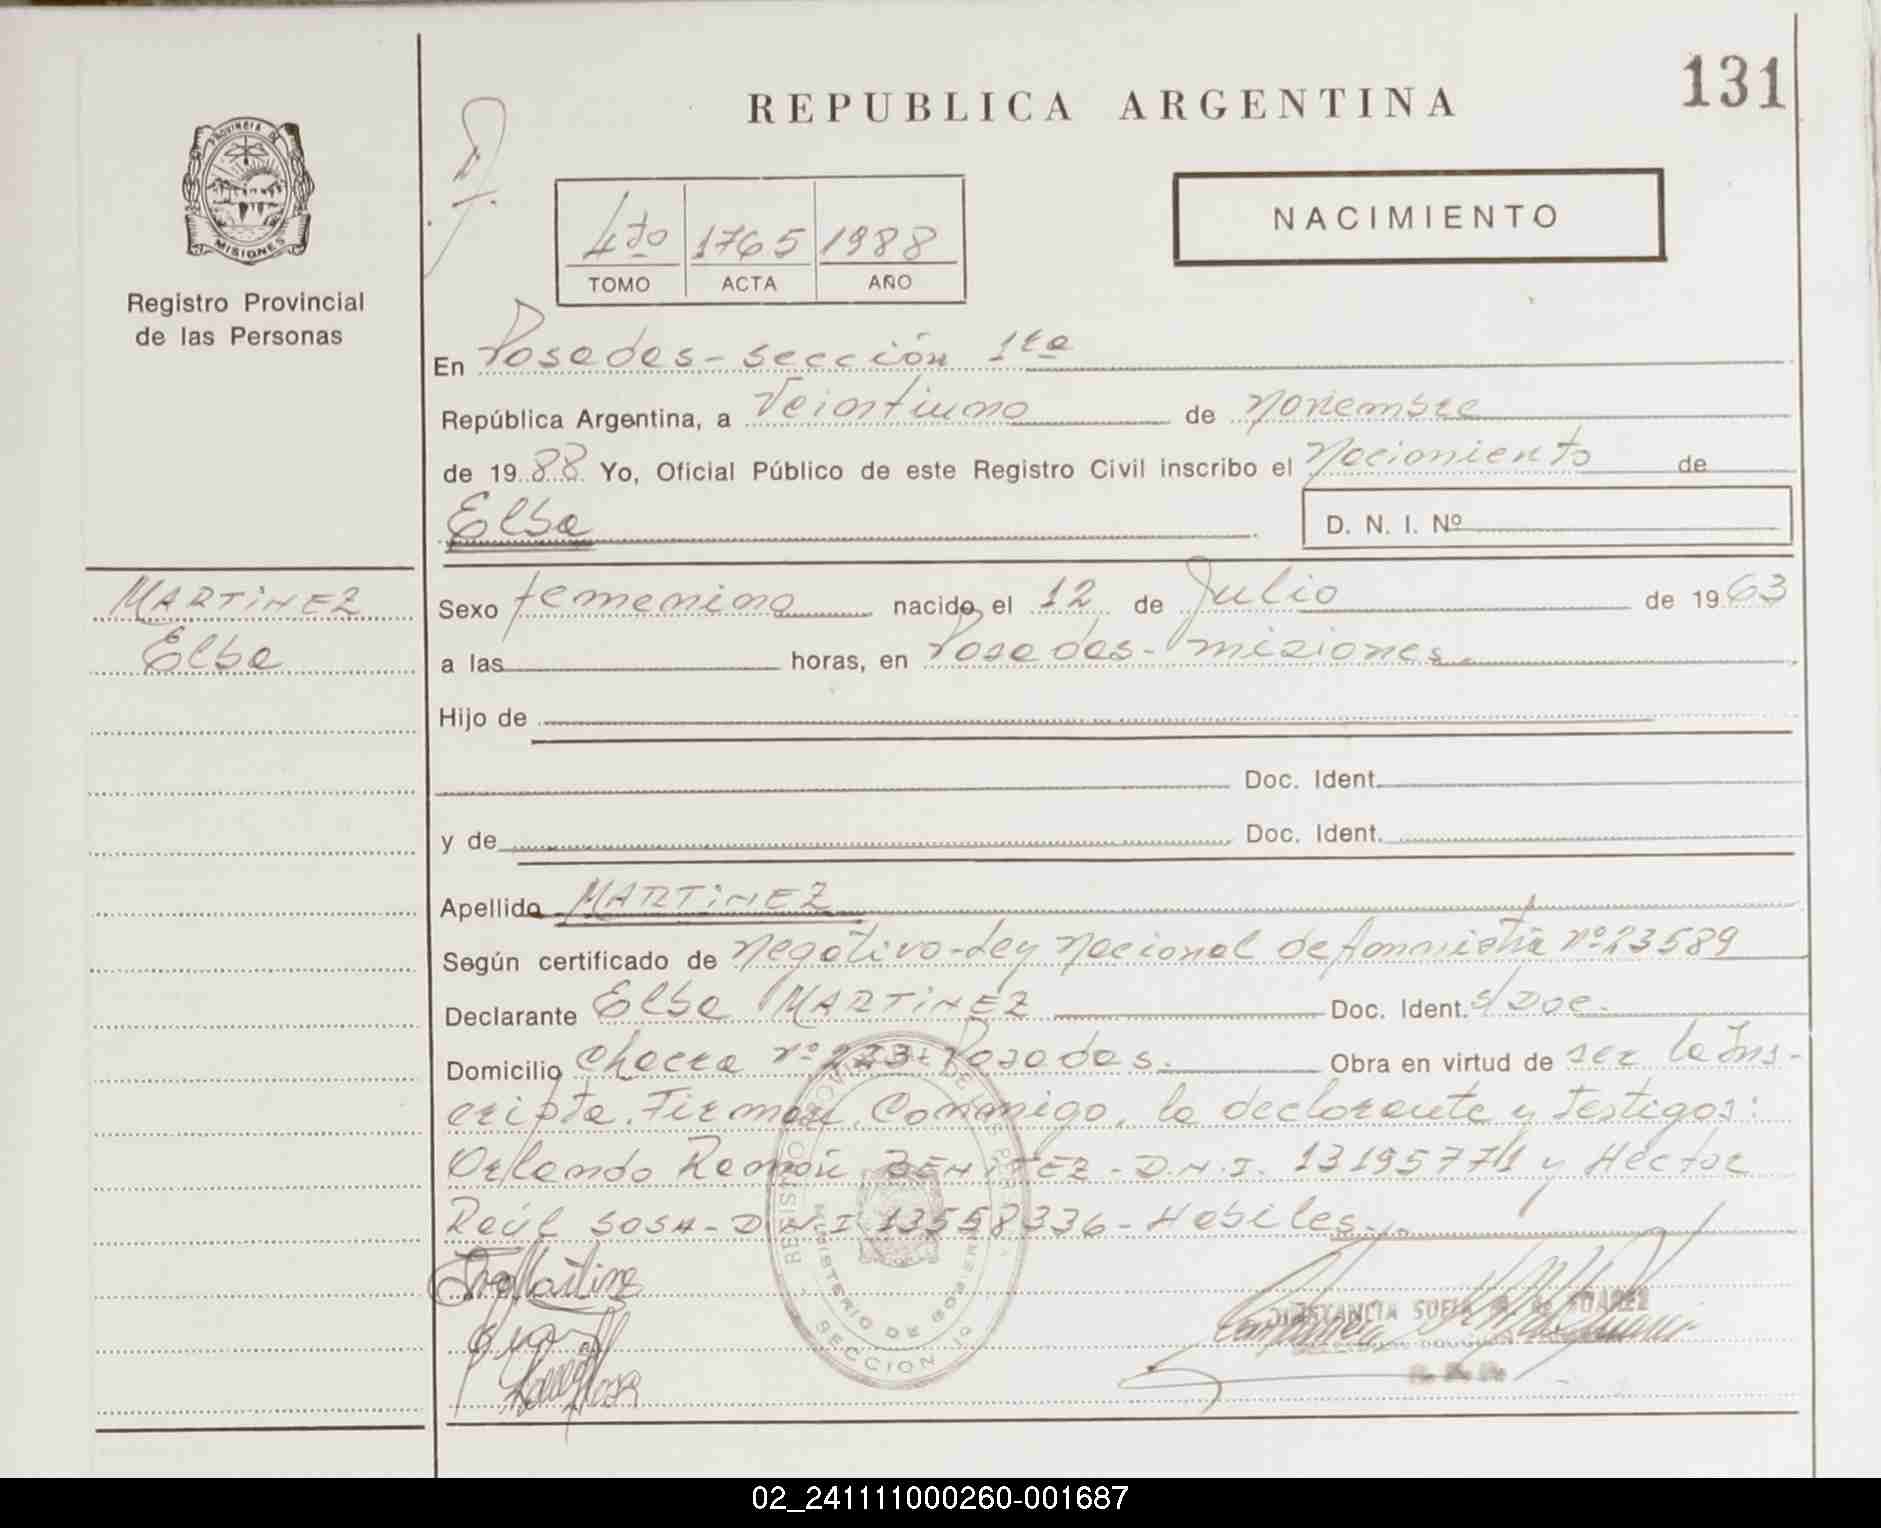 REPUBLICA ARGENTINA
131
PROVINCIA DE
MISIONES
Registro Provincial
de las Personas
4to 1765 1988
TOMO ACTA AÑO
NACIMIENTO
En Posadas - sección 1ra
República Argentina, a Veintiuno de noviembre
de 1988 Yo, Oficial Público de este Registro Civil inscribo el Nacimiento de
Elba D. N. I. Nº
MARTINEZ
Elba
Sexo femenino nacido el 12 de Julio de 1963
a las horas, en Posadas - misiones.
Hijo de
Doc. Ident.
y de Doc. Ident.
Apellido MARTINEZ
Según certificado de Negativo - Ley Nacional de Amnistía nº 23589
Declarante Elba MARTINEZ Doc. Ident. s/Doc.
Domicilio Chacra nº 223 - Posadas. Obra en virtud de ser la Ins-
cripta. Firman Conmigo, la declarante y Testigos:
Orlando Ramón BENITEZ - D.N.I. 13195771 y Héctor
Raúl SOSA - D.N.I 13558336 - Habiles.
MINISTERIO DE GOBIERNO
SECCION
CONSTANCIA SOFIA de SUAREZ
02_241111000260-001687